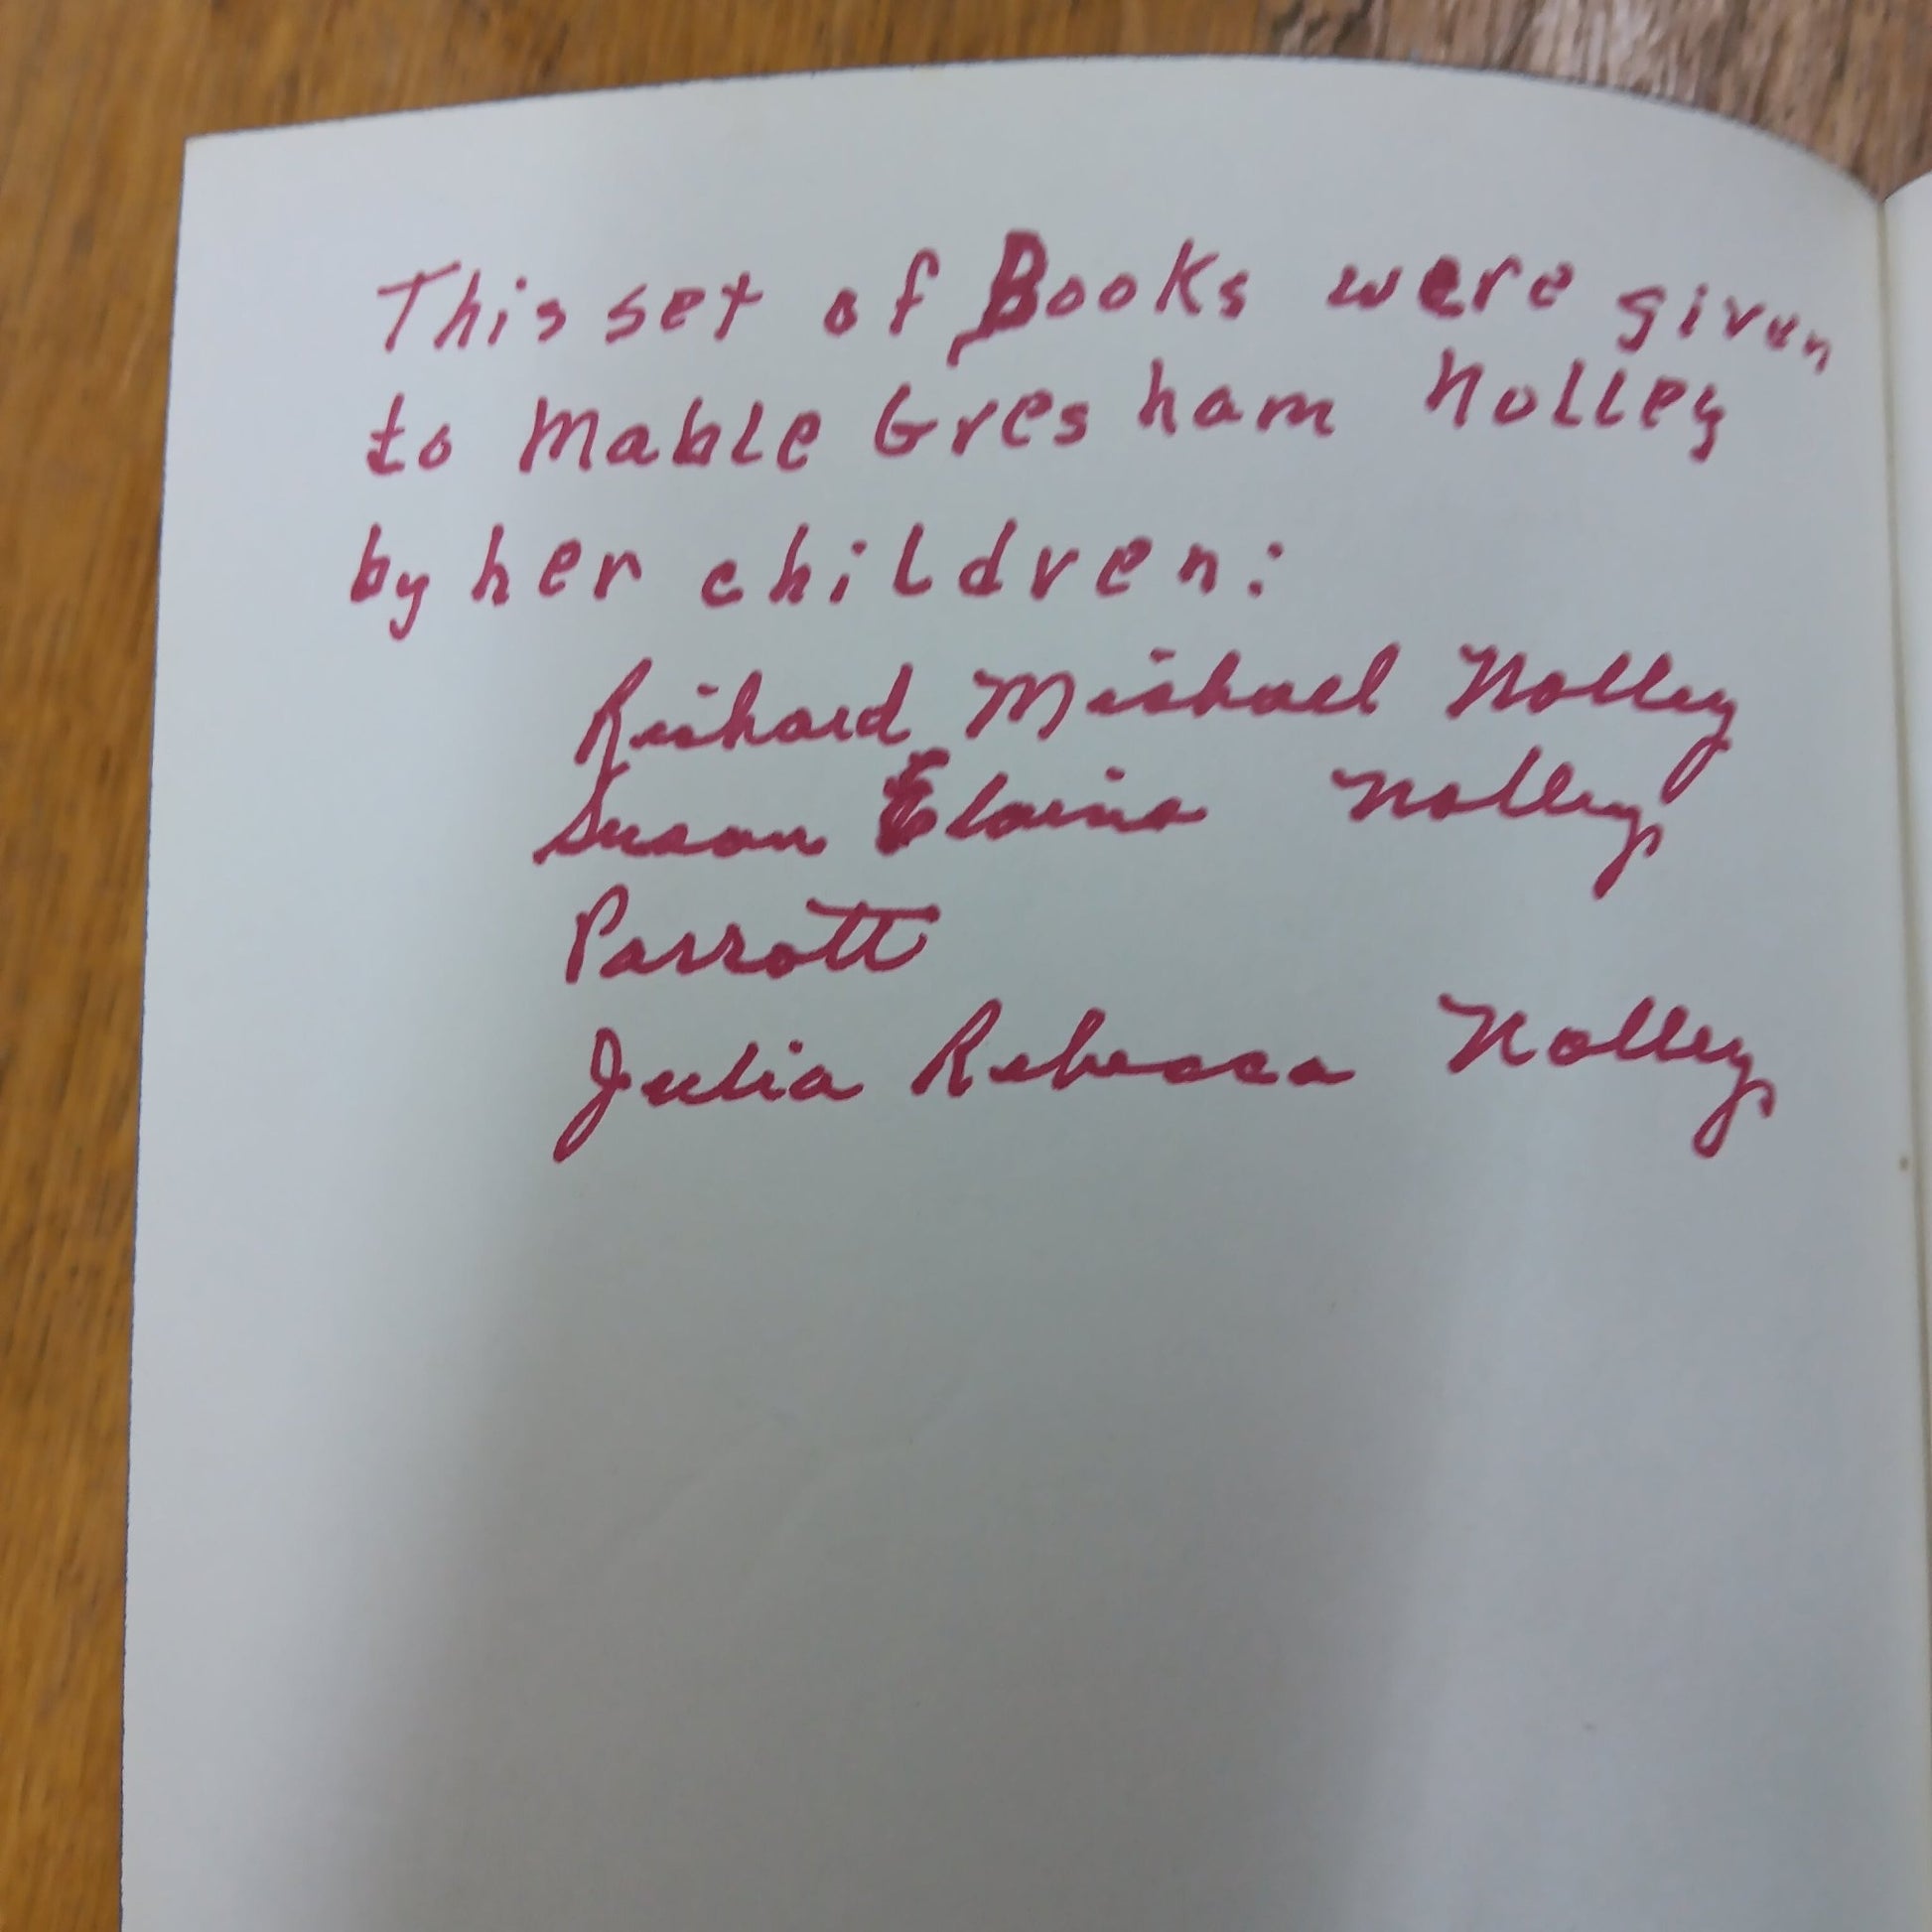 This set of Books were given
to Mable Gresham Nolley
by her children:
Richard Michael Nolley
Susan Elaine Nolley
Parrott
Julia Rebecca Nolley